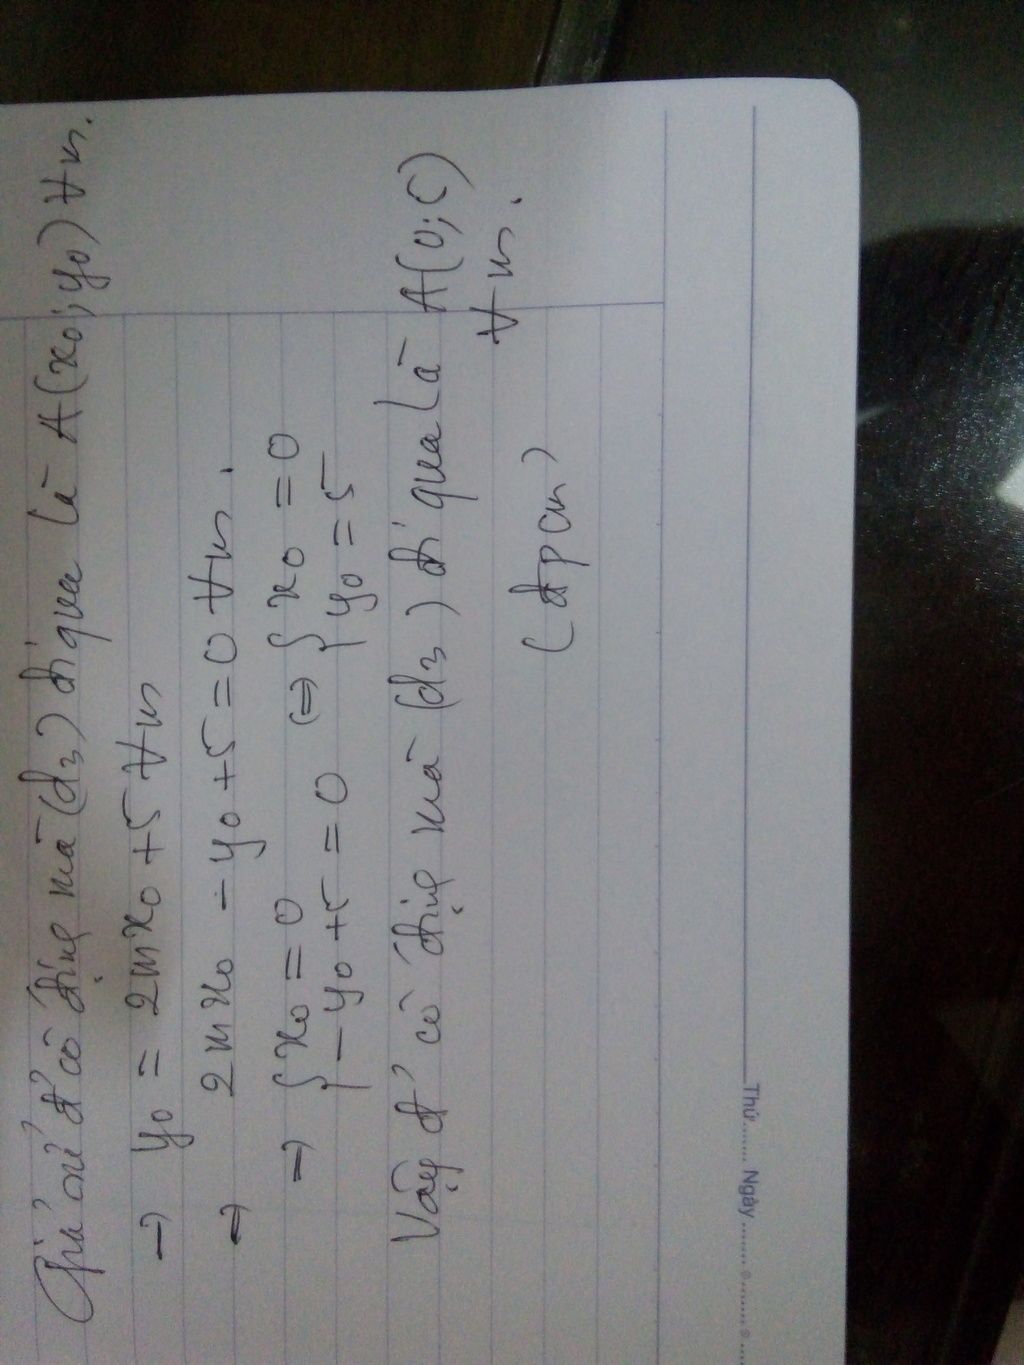 Giả sử đ' cố định mà (d3) đi qua là A(x0; y0) ∀m.
⇒ y0 = 2mx0 + 5 ∀m
⇒ 2mx0 - y0 + 5 = 0 ∀m.
⇒ { x0 = 0 ⇔ { x0 = 0
{ -y0 + 5 = 0 { y0 = 5
Vậy đ' cố định mà (d3) đi qua là A(0; 5)
∀m.
(đpcm)
Thứ....... Ngày